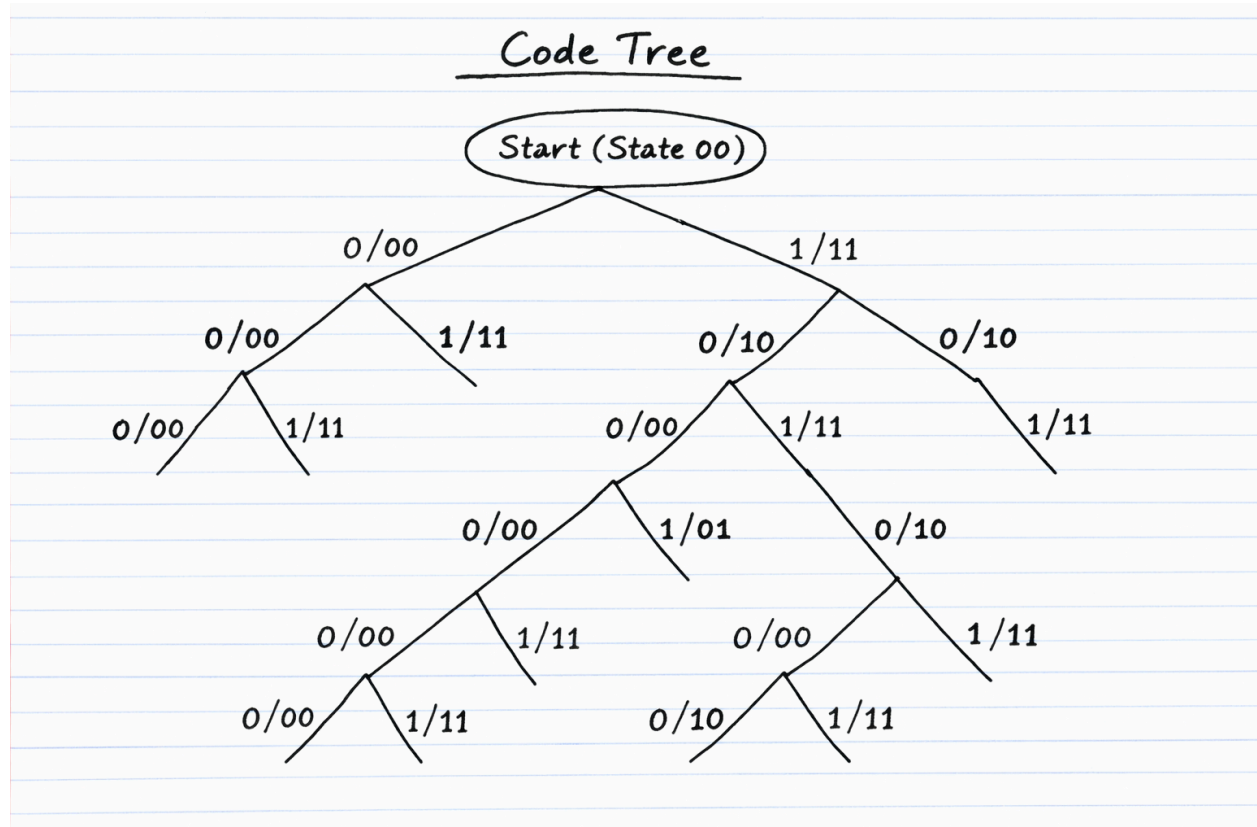 Code Tree
Start (State 00)
0/00 1/11
0/00 1/11 0/10 0/10
0/00 1/11 0/00 1/11 1/11
0/00 1/01 0/10
0/00 1/11 0/00 1/11
0/00 1/11 0/10 1/11